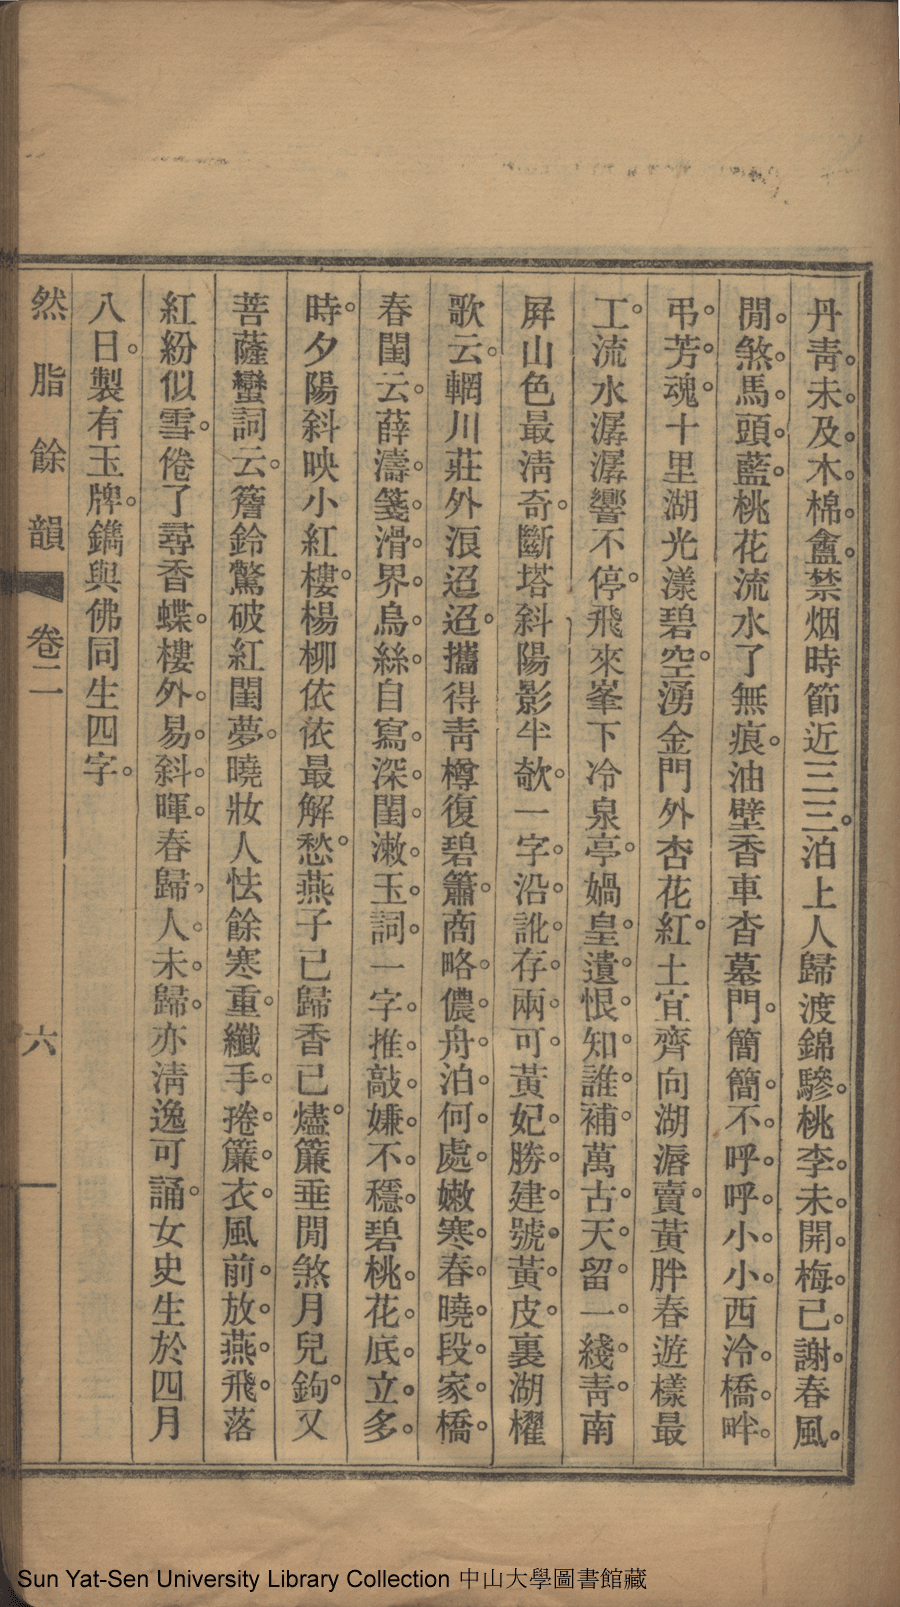 丹靑未及木棉盦禁烟時節近三三泊上人歸渡錦驂桃李未開梅已謝春風
閒煞馬頭藍桃花流水了無痕油壁香車杳墓門簡簡不呼呼小小西泠橋畔
弔芳魂十里湖光漾碧空湧金門外杏花紅土宜齊向湖漘賣黃胖春遊樣最
工流水潺潺響不停飛來峯下冷泉亭媧皇遺恨知誰補萬古天留一綫靑南
屛山色最淸奇斷塔斜陽影半欹一字沿訛存兩可黃妃勝建號黃皮裏湖櫂
歌云輞川莊外浪迢迢攜得靑樽復碧簫商略儂舟泊何處嫩寒春曉段家橋
春閨云薛濤箋滑界烏絲自寫深閨漱玉詞一字推敲嫌不穩碧桃花底立多
時夕陽斜映小紅樓楊柳依依最解愁燕子已歸香已燼簾垂閒煞月兒鉤又
菩薩蠻詞云簷鈴驚破紅閨夢曉妝人怯餘寒重纖手捲簾衣風前放燕飛落
紅紛似雪倦了尋香蝶樓外易斜暉春歸人未歸亦淸逸可誦女史生於四月
八日製有玉牌鐫與佛同生四字
然脂餘韻 卷二 六
Sun Yat-Sen University Library Collection 中山大學圖書館藏